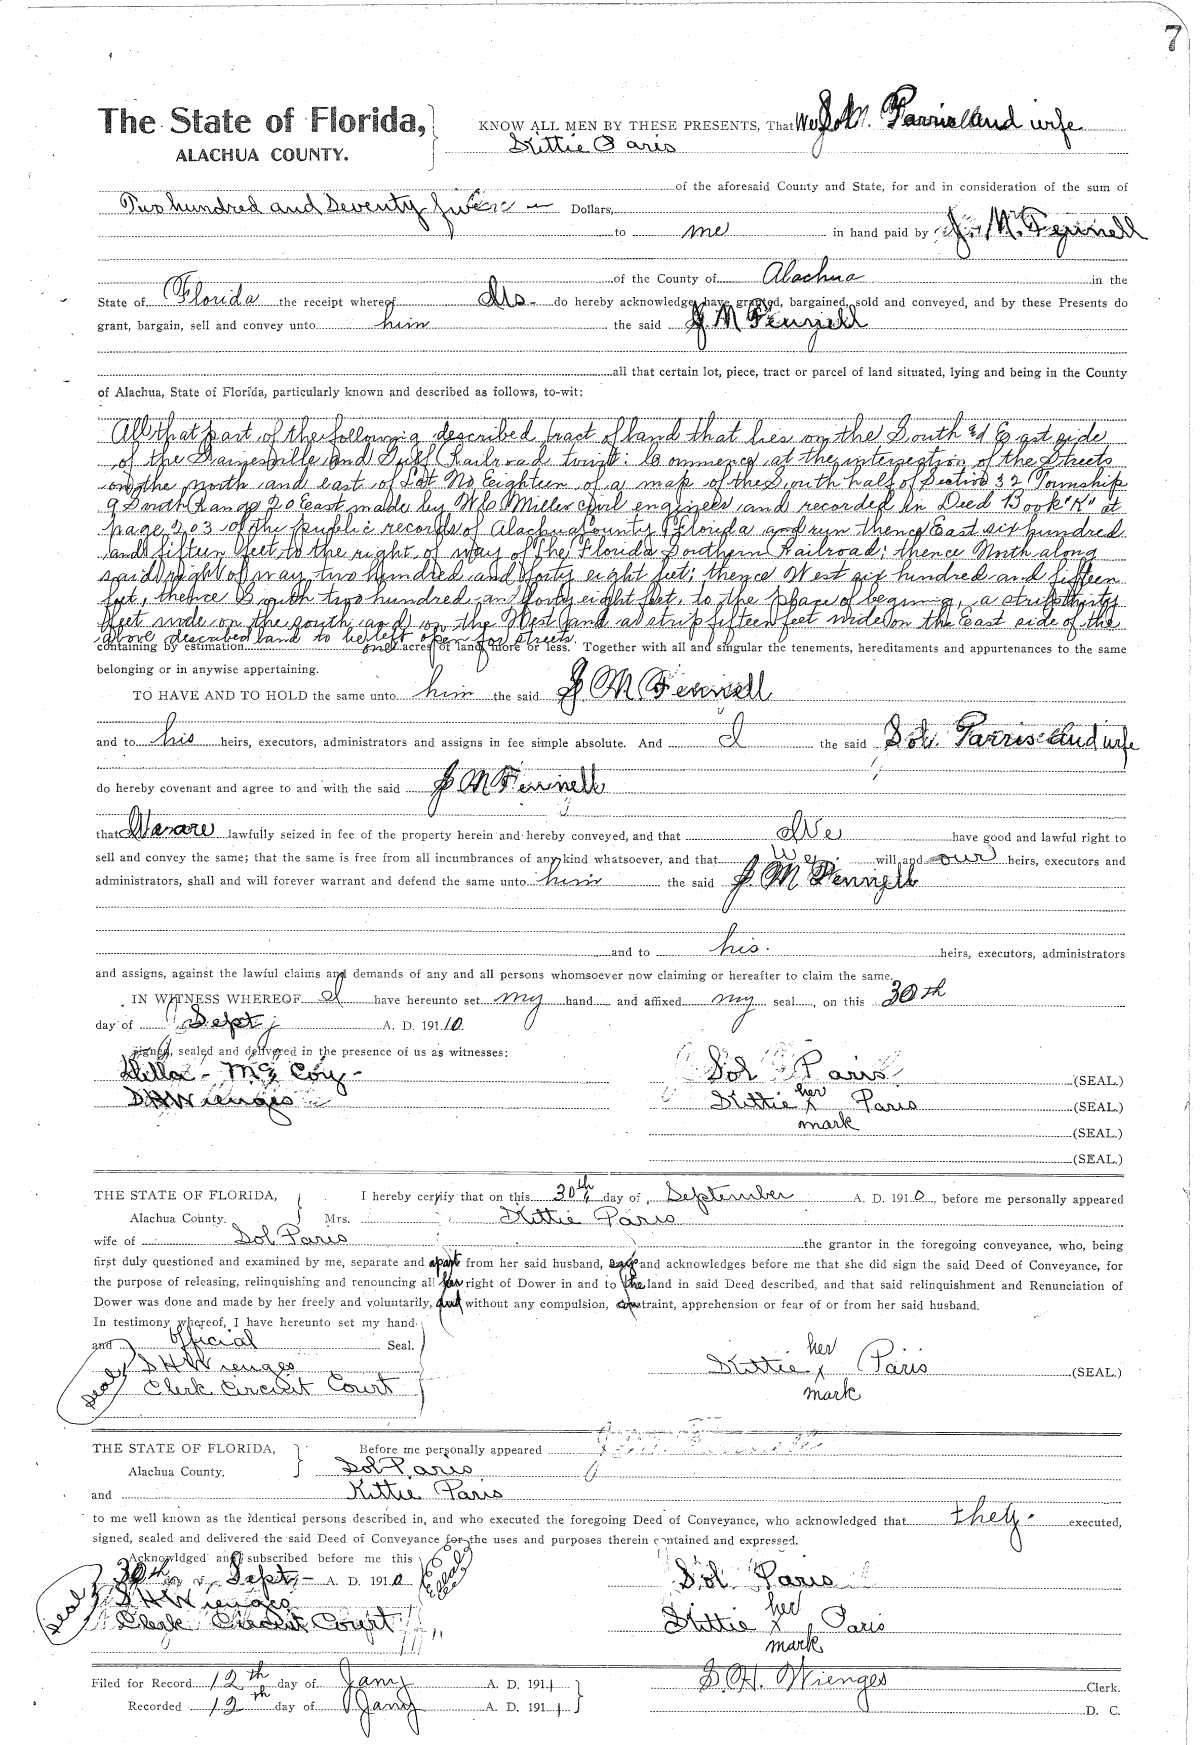 7
The State of Florida,
ALACHUA COUNTY.
KNOW ALL MEN BY THESE PRESENTS, That We Sol Parris and wife
Kittie Paris
of the aforesaid County and State, for and in consideration of the sum of
Two hundred and Seventy five Dollars,
to me in hand paid by J. M. Fennell
of the County of Alachua in the
State of Florida the receipt whereof do hereby acknowledge, have granted, bargained, sold and conveyed, and by these Presents do
grant, bargain, sell and convey unto him the said J M Fennell
all that certain lot, piece, tract or parcel of land situated, lying and being in the County
of Alachua, State of Florida, particularly known and described as follows, to-wit:
All that part of the following described tract of land that lies on the South &d East side
of the Gainesville and Gulf Railroad towit: Commence at the intersection of the Streets
on the north and east of Lot No Eighteen of a map of the South half of Section 32 Township
9 South Range 20 East made by W O Miller civil engineer and recorded in Deed Book "K" at
page 203 of the public records of Alachua County Florida and run thence East six hundred
and fifteen feet to the right of way of the Florida Southern Railroad; thence North along
said right of way two hundred and forty eight feet; thence West six hundred and fifteen
feet, thence South two hundred and forty eight feet, to the place of beging, a strip thirty
feet wide on the south and on the West and a strip fifteen feet wide on the East side of the
above described land to be left open for streets.
containing by estimation one acres of land, more or less. Together with all and singular the tenements, hereditaments and appurtenances to the same
belonging or in anywise appertaining.
TO HAVE AND TO HOLD the same unto him the said J M Fennell
and to his heirs, executors, administrators and assigns in fee simple absolute. And I the said Sol. Parris and wife
do hereby covenant and agree to and with the said J M Fennell
that We are lawfully seized in fee of the property herein and hereby conveyed, and that We have good and lawful right to
sell and convey the same; that the same is free from all incumbrances of any kind whatsoever, and that we will and our heirs, executors and
administrators, shall and will forever warrant and defend the same unto him the said J. M Fennell
and to his heirs, executors, administrators
and assigns, against the lawful claims and demands of any and all persons whomsoever now claiming or hereafter to claim the same.
IN WITNESS WHEREOF I have hereunto set my hand and affixed my seal, on this 30th
day of Sept A. D. 1910.
Signed, sealed and delivered in the presence of us as witnesses:
Della McCoy Sol Paris (SEAL.)
S H Wienges Kittie her x mark Paris (SEAL.)
(SEAL.)
(SEAL.)
THE STATE OF FLORIDA, I hereby certify that on this 30th day of September A. D. 1910, before me personally appeared
Alachua County. Mrs. Kittie Paris
wife of Sol Paris the grantor in the foregoing conveyance, who, being
first duly questioned and examined by me, separate and apart from her said husband, says and acknowledges before me that she did sign the said Deed of Conveyance, for
the purpose of releasing, relinquishing and renouncing all her right of Dower in and to the land in said Deed described, and that said relinquishment and Renunciation of
Dower was done and made by her freely and voluntarily, and without any compulsion, constraint, apprehension or fear of or from her said husband.
In testimony whereof, I have hereunto set my hand
and official Seal.
S H Wienges
Clerk Circuit Court
seal
Kittie her x mark Paris (SEAL.)
THE STATE OF FLORIDA, Before me personally appeared
Alachua County. Sol Paris
and Kittie Paris
to me well known as the identical persons described in, and who executed the foregoing Deed of Conveyance, who acknowledged that they executed,
signed, sealed and delivered the said Deed of Conveyance for the uses and purposes therein contained and expressed.
Acknowldged and subscribed before me this
30th Sept A. D. 1910 Sol Paris
S H Wienges
Clerk Circuit Court
seal
Kittie her x mark Paris
Filed for Record 12th day of Jany A. D. 1911 S. H. Wienges Clerk.
Recorded 12th day of Jany A. D. 1911 D. C.